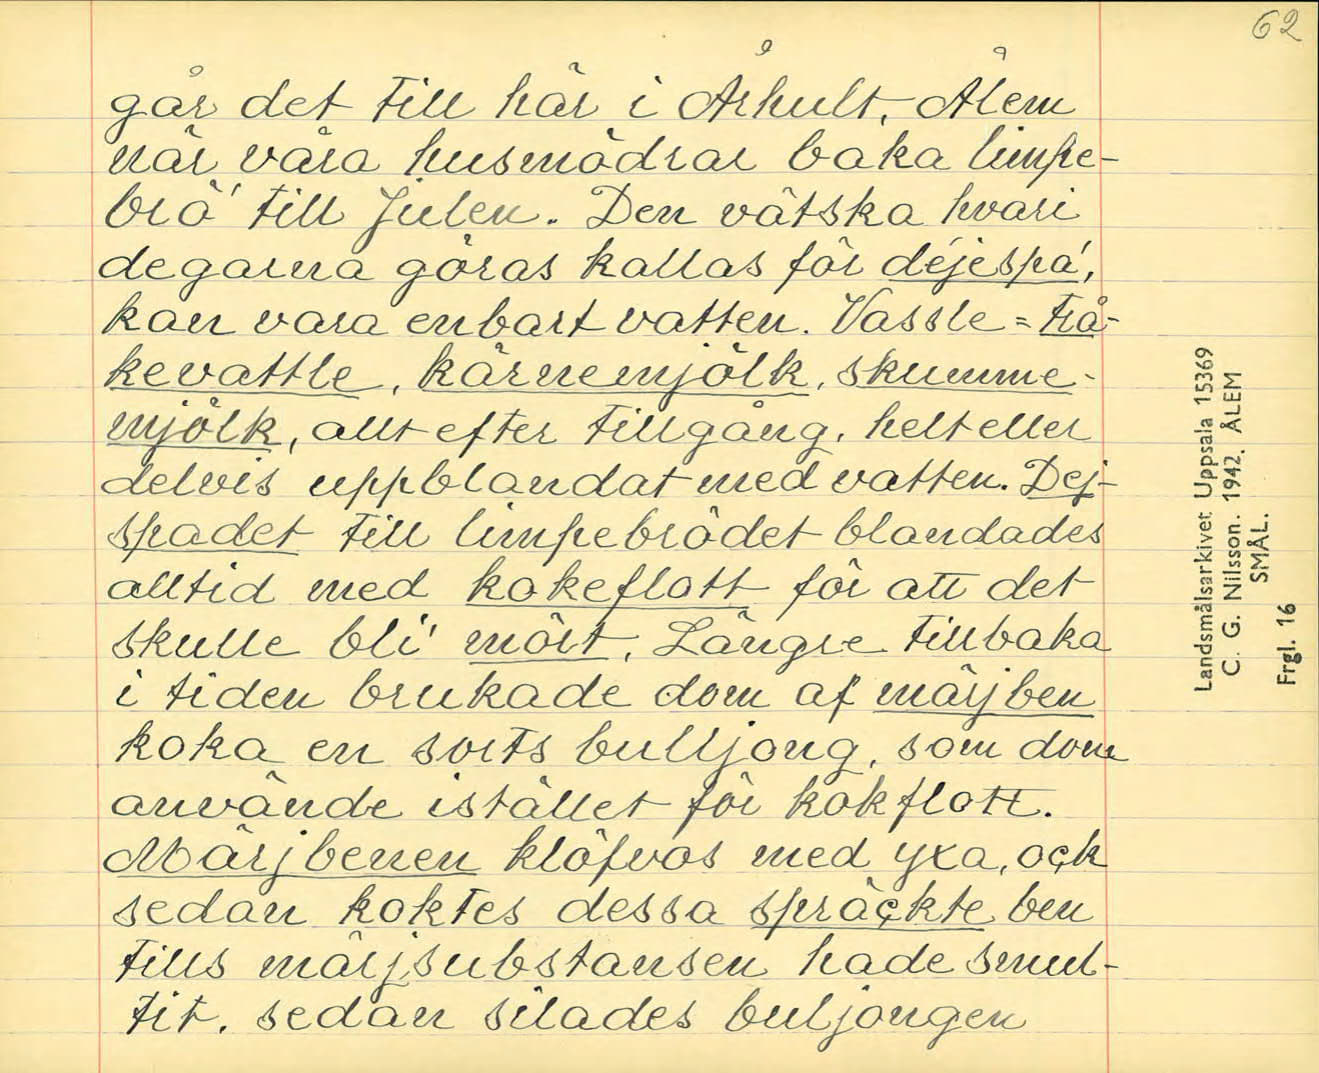 62
går det till här i Århult, Ålem
när våra husmödrar baka limpe-
brö' till Julen. Den vätska hvari
degarna göras kallas för déjespa',
kan vara enbart vatten. Vassle = trå-
kevattle, kärnemjölk, skumme-
mjölk, allt efter tillgång, helt eller
delvis uppblandat med vatten. Dej-
spadet till limpebrödet blandades
alltid med kokeflott för att det
skulle bli' mört. Längre tillbaka
i tiden brukade dom af märjben
koka en sorts bulljong, som dom
använde istället för kokflott.
Märjbenen klöfvos med yxa, ock
sedan koktes dessa spräckte ben
tills märjsubstansen hade smul-
tit. sedan silades buljongen
Landsmålsarkivet Uppsala 15369
C. G. Nilsson. 1942. ÅLEM
SMÅL.
Frgl. 16